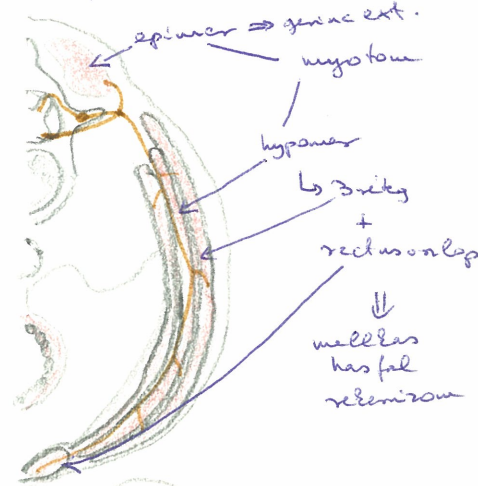 epimer ⇒ gerinc ext.
myotom
hypomer
↳ 3 réteg
+
rectus oszlop
⇓
mellkas
hasfal
rekeszizom